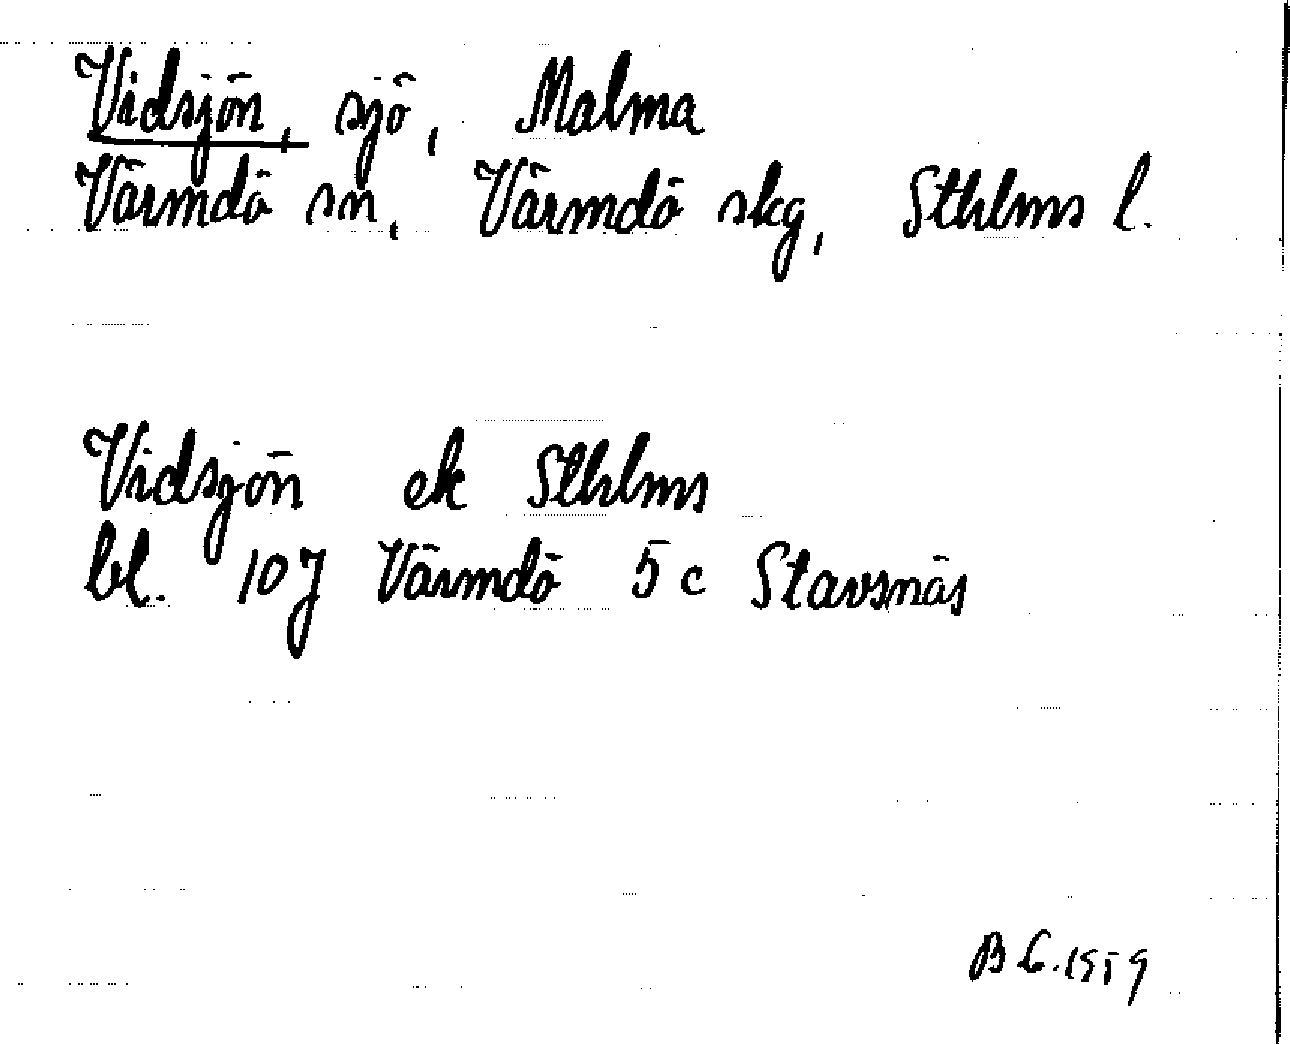 Vidsjön, sjö, Malma
Värmdö sn, Värmdö skg, Sthlms l.
Vidsjön ek Sthlms
bl. 10J Värmdö 5c Stavsnäs
B L. 1959